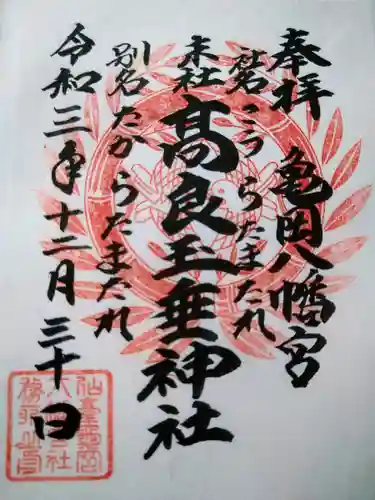 奉拝
亀岡八幡宮
社名
こうらたまたれ
末社
高良玉垂神社
別名
たからたまたれ
令和三年十二月三十日